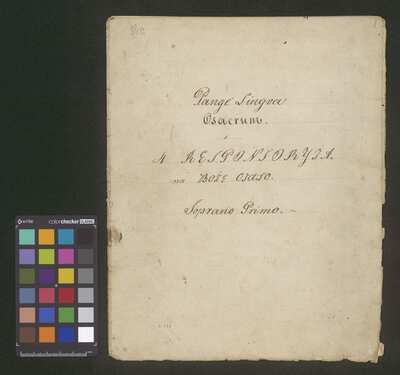 Pange Lingva
Osacrum.
á
4 RESPONSORYJA.
na BOŽE CIAŁO.
Soprano Primo.
x-rite
colorchecker CLASSIC